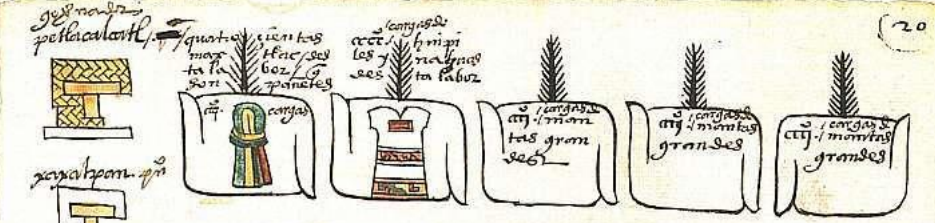 gobernador
petlacalcatl.
xaxalpan. pu
quatroçientas
maxtlac / des
ta labor / q̃
son pañetes
cccc. cargas
cargas de
cccc. huipi
les y naguas
desta labor
cccc. / cargas de
mantas gran
des
cccc. / cargas de
mantas
grandes
cccc. / cargas de
mantas
grandes
20